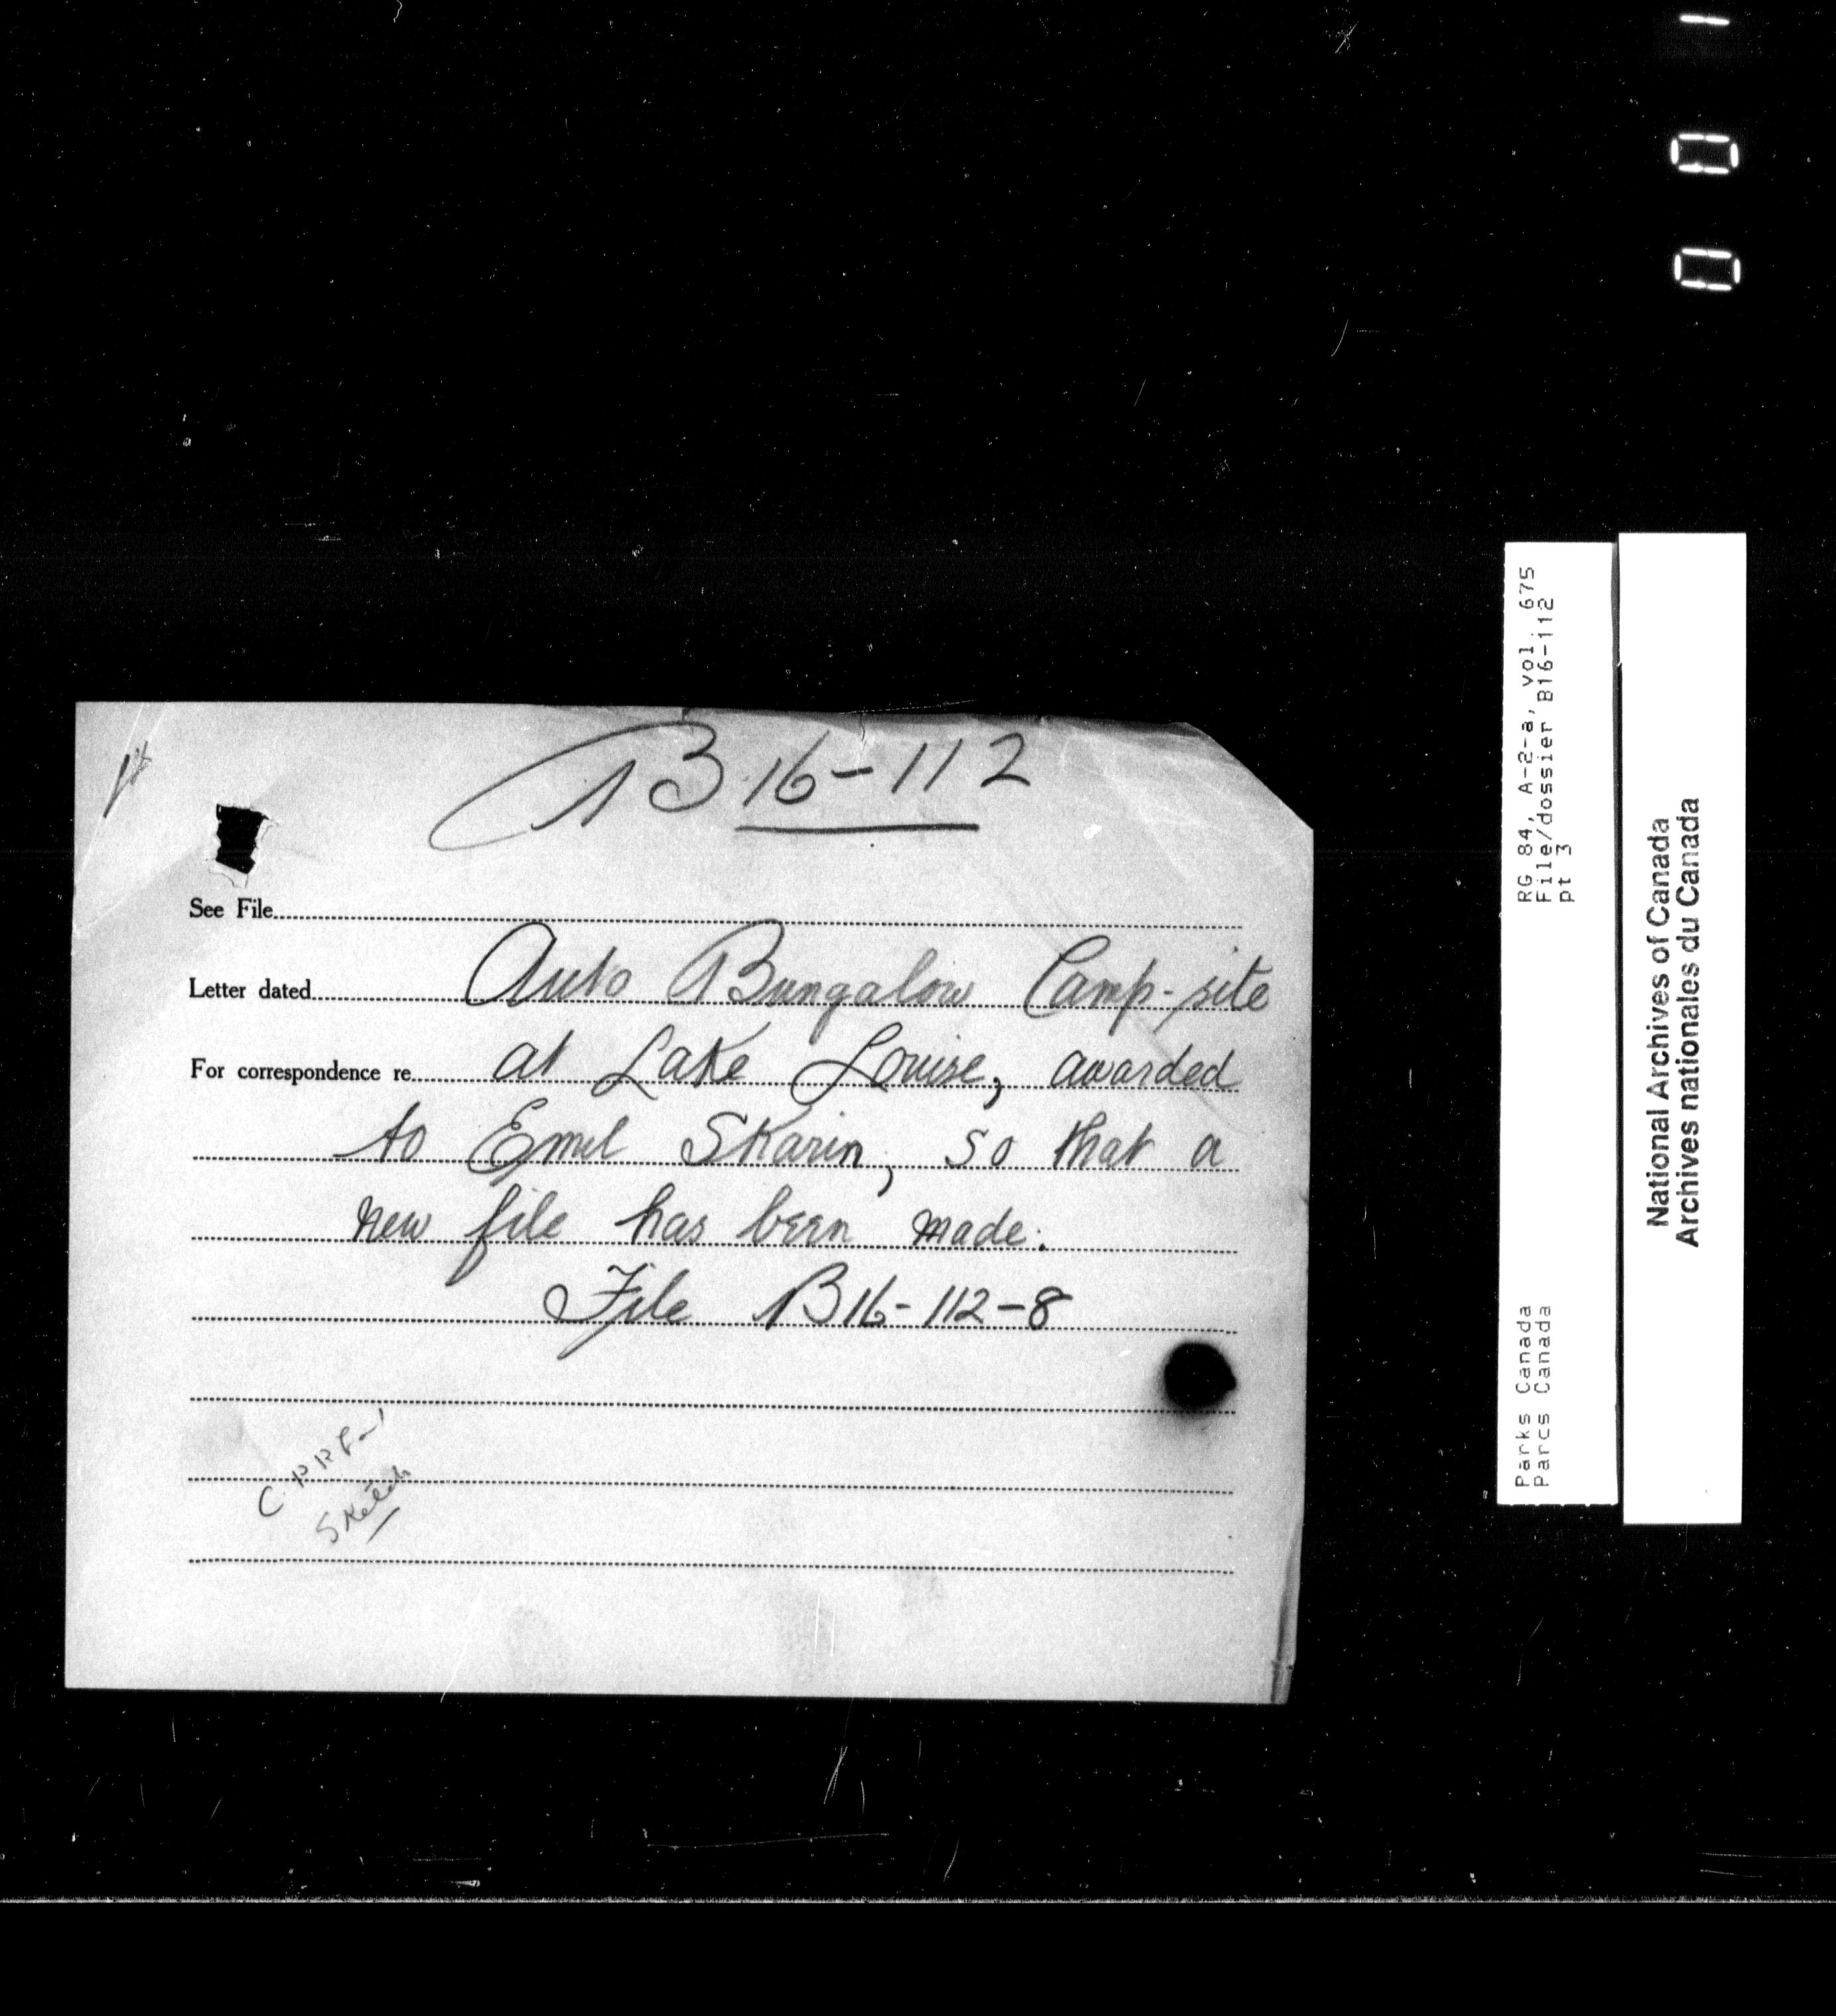 B 16-112
See File
Letter dated Auto Bungalow Camp-site
For correspondence re at Lake Louise, awarded
to Emil Skarin, so that a
new file has been made.
File B16-112-8
Sketch
RG 84, A-2-a, vol. 675
File/dossier B16-112
pt 3
Parks Canada
Parcs Canada
National Archives of Canada
Archives nationales du Canada
001